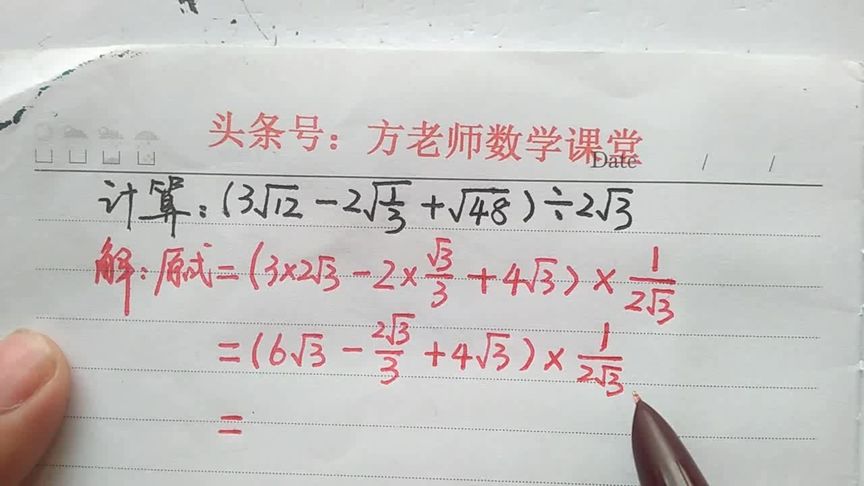 头条号：方老师数学课堂
Date / /
计算：(3√12 - 2√(1/3) + √48) ÷ 2√3
解：原式 = (3×2√3 - 2×√3/3 + 4√3) × 1/(2√3)
= (6√3 - 2√3/3 + 4√3) × 1/(2√3)
=